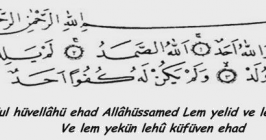 اللهِ الرَّحْمٰنِ الرَّ
اللهُ اَحَدٌ ۝ اَللهُ الصَّمَدُ ۝ لَمْ يَلِدْ
يُولَدْ ۝ وَلَمْ يَكُنْ لَهُ كُفُوًا اَحَدٌ
ul hüvellâhü ehad Allâhüssamed Lem yelid ve le
Ve lem yekün lehû küfüven ehad